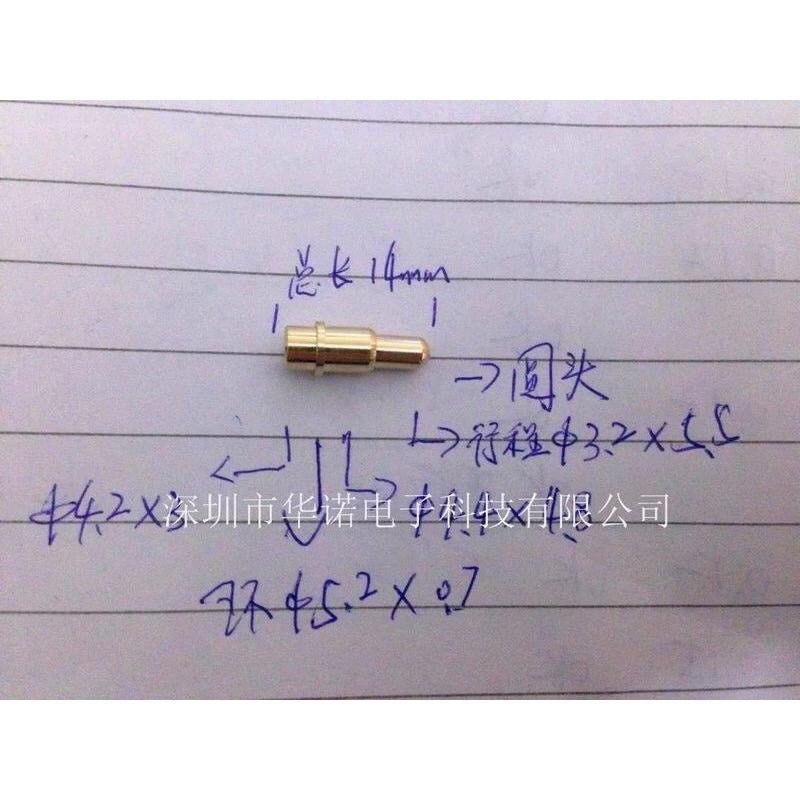 总长14mm
→圆头
行程φ3.2×5.5
φ4.2×3
φ4.4×4.8
深圳市华诺电子科技有限公司
环φ5.2×0.7